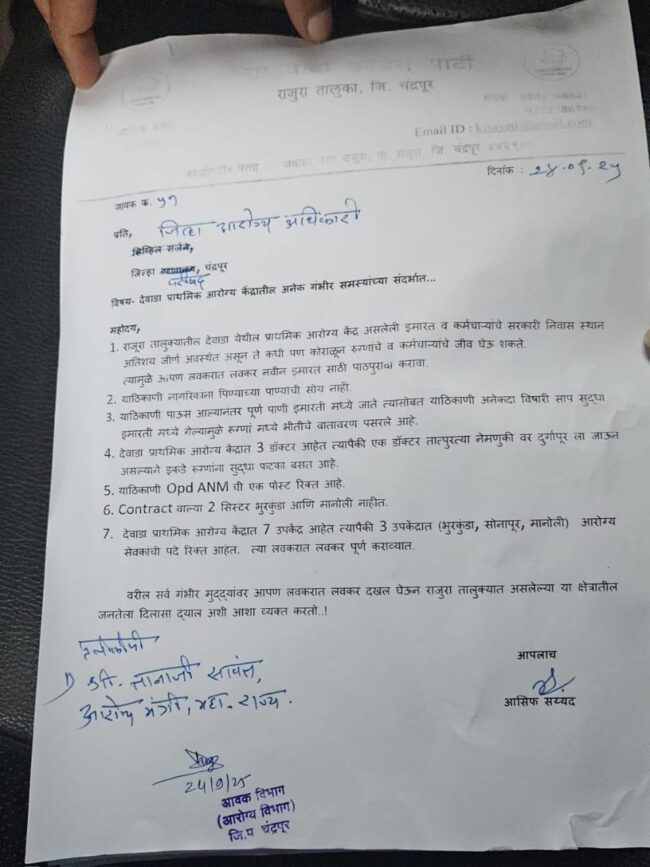 पार्टी
राजुरा तालुका, जि. चंद्रपूर
Email ID :
राजुरा, ता. राजुरा, जि. चंद्रपूर
दिनांक : २४.०९.२५
जावक क्र. ५१
प्रति, जिल्हा आरोग्य अधिकारी
सिव्हिल सर्जन,
जिल्हा परिषद, चंद्रपूर
विषय- देवाडा प्राथमिक आरोग्य केंद्रातील अनेक गंभीर समस्यांच्या संदर्भात...
महोदय,
1. राजूरा तालुक्यातील देवाडा येथील प्राथमिक आरोग्य केंद्र असलेली इमारत व कर्मचाऱ्यांचे सरकारी निवास स्थान
अतिशय जीर्ण अवस्थेत असून ते कधी पण कोराळून रुग्णांचे व कर्मचाऱ्यांचे जीव घेऊ शकते.
त्यामुळे आपण लवकरात लवकर नवीन इमारत साठी पाठपुरावा करावा.
2. याठिकाणी नागरिकांना पिण्याच्या पाण्याची सोय नाही.
3. याठिकाणी पाऊस आल्यानंतर पूर्ण पाणी इमारती मध्ये जाते त्यासोबत याठिकाणी अनेकदा विषारी साप सुद्धा
इमारती मध्ये गेल्यामुळे रुग्णां मध्ये भीतीचे वातावरण पसरले आहे.
4. देवाडा प्राथमिक आरोग्य केंद्रात 3 डॉक्टर आहेत त्यापैकी एक डॉक्टर तात्पुरत्या नेमणुकी वर दुर्गापूर ला जाऊन
असल्याने इकडे रुग्णांना सुद्धा फटका बसत आहे.
5. याठिकाणी Opd ANM ची एक पोस्ट रिक्त आहे.
6. Contract वाल्या 2 सिस्टर भुरकुंडा आणि मानोली नाहीत.
7. देवाडा प्राथमिक आरोग्य केंद्रात 7 उपकेंद्र आहेत त्यापैकी 3 उपकेंद्रात (भुरकुंडा, सोनापूर, मानोली) आरोग्य
सेवकांची पदे रिक्त आहेत. त्या लवकरात लवकर पूर्ण कराव्यात.
वरील सर्व गंभीर मुद्द्यांवर आपण लवकरात लवकर दखल घेऊन राजुरा तालुक्यात असलेल्या या क्षेत्रातील
जनतेला दिलासा द्याल अशी आशा व्यक्त करतो..!
प्रतिलिपी
1) श्री. तानाजी सावंत,
आरोग्य मंत्री, महा. राज्य.
आपलाच
आसिफ सय्यद
24/9/25
आवक विभाग
(आरोग्य विभाग)
जि.प चंद्रपूर